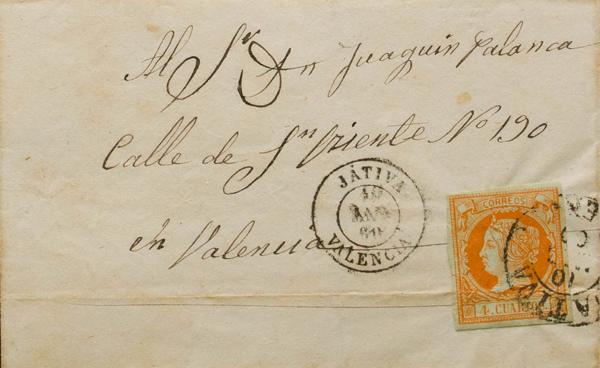 Al Sr. Dn Juaquin Palanca
Calle de Sn Visiente No 190
en Valencia
JÁTIVA
10
60
VALENCIA
CORREOS
4 CUART